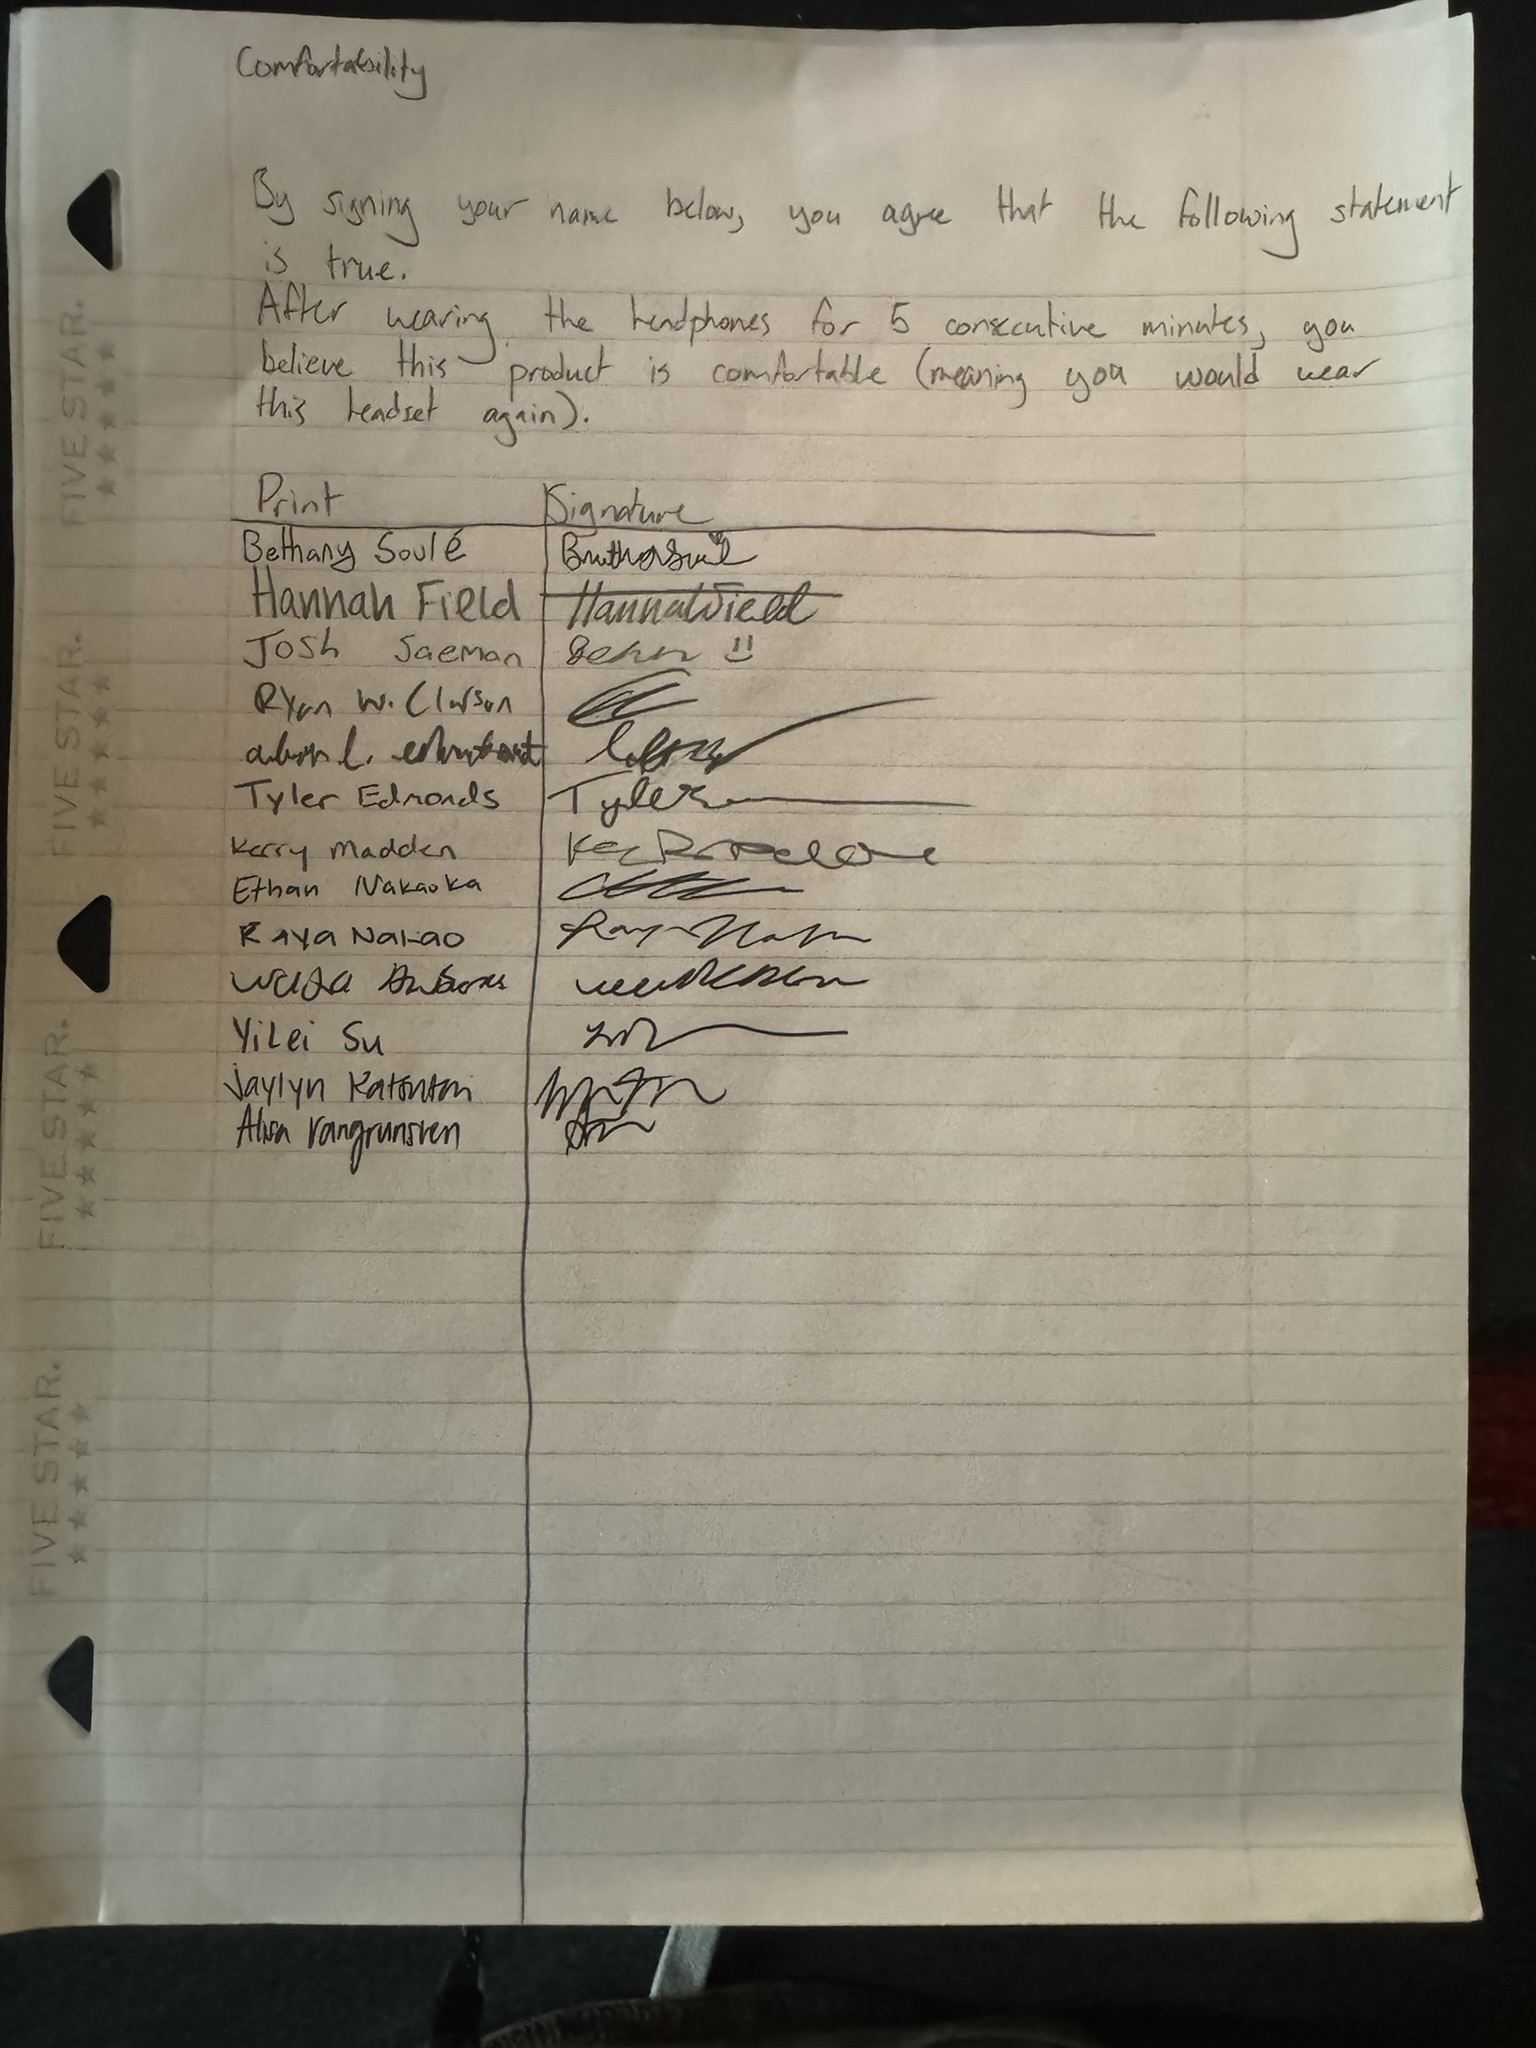 Comfortability
By signing your name below, you agree that the following statement
is true.
After wearing the headphones for 5 consecutive minutes, you
believe this product is comfortable (meaning you would wear
this headset again).
Print Signature
Bethany Soulé
Hannah Field Hannah Field
Josh Saeman
Ryan W. Clarson
Tyler Edmonds Tyler
Kerry Madden
Ethan Nakaoka
Raya Nakao
Yilei Su
Jaylyn
Alisa Vangrunsven
FIVE STAR.
FIVE STAR.
FIVE STAR.
FIVE STAR.